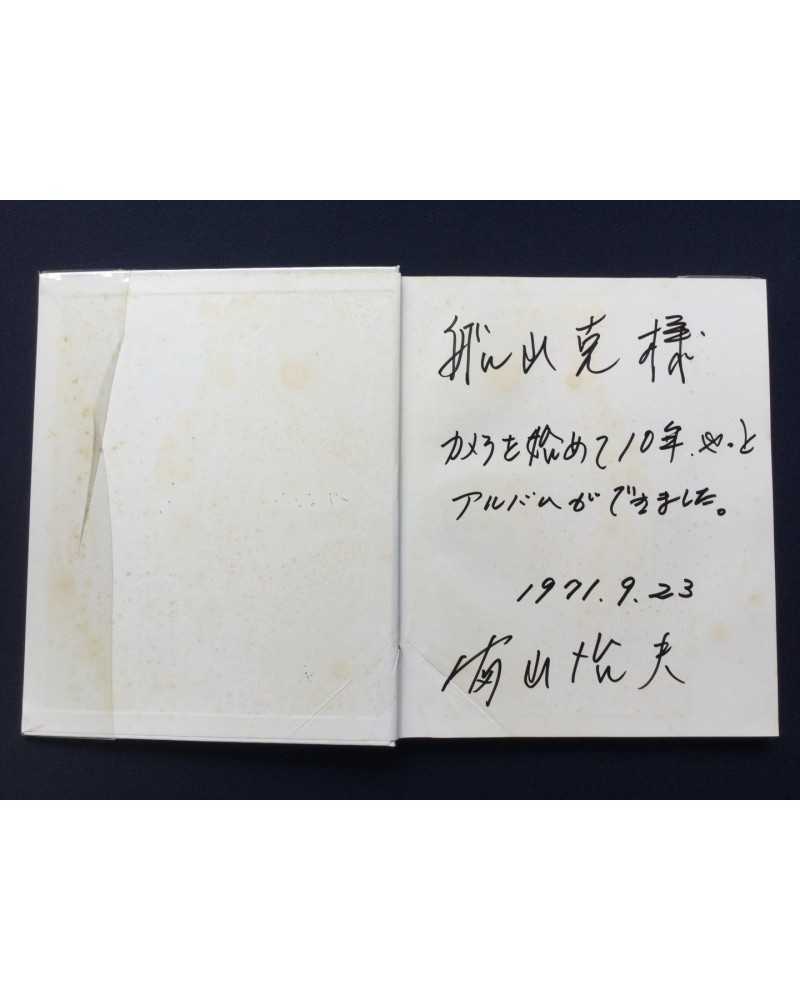 船山克様
カメラを始めて10年、やっと
アルバムができました。
1971.9.23
山 夫